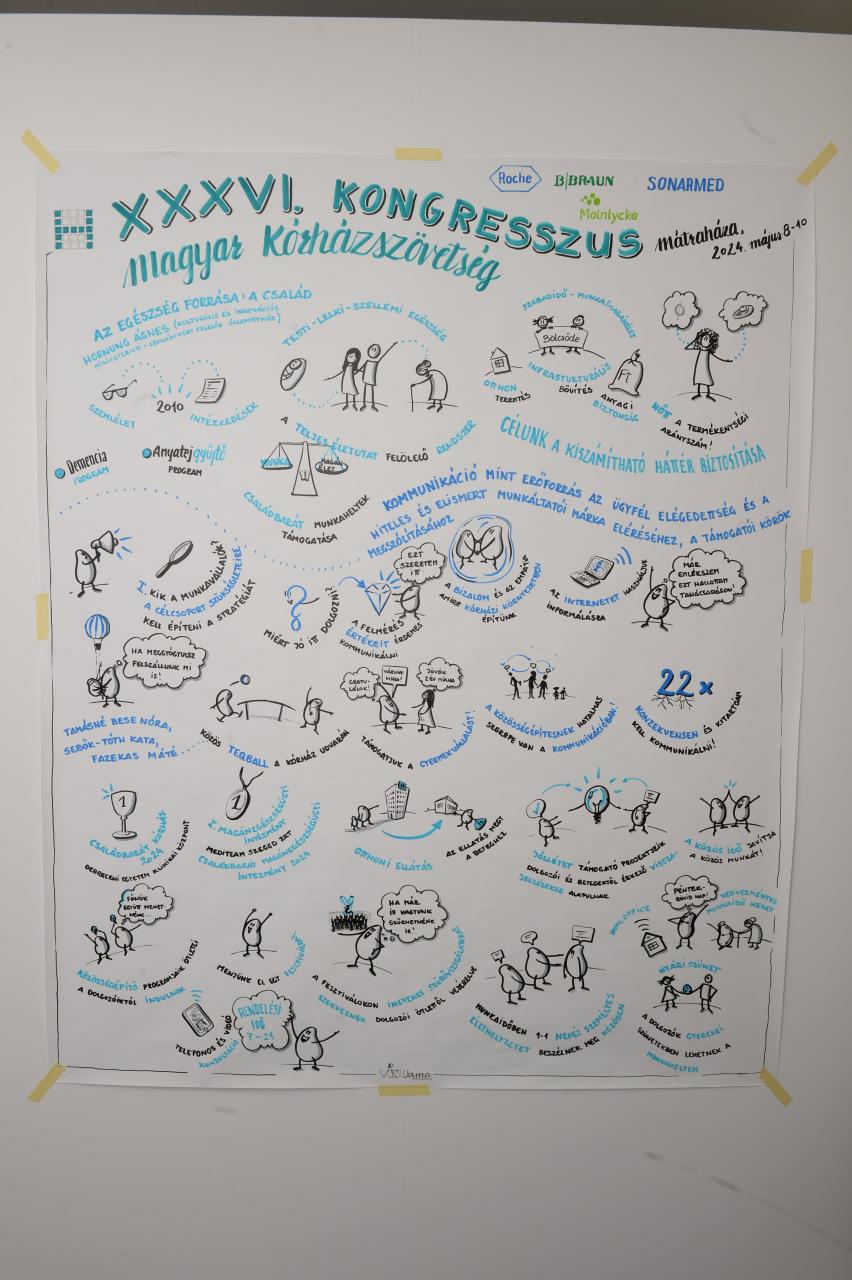 XXXVI. KONGRESSZUS
Magyar Kórházszövetség
Roche
B|BRAUN
SONARMED
Mölnlycke
Mátraháza,
2024. május 8-10
AZ EGÉSZSÉG FORRÁSA: A CSALÁD
HORNUNG ÁGNES (KULTURÁLIS ÉS INNOVÁCIÓS
MINISZTÉRIUM - CSALÁDOKÉRT FELELŐS ÁLLAMTITKÁR)
SZEMLÉLET
2010
INTÉZKEDÉSEK
TESTI-LELKI-SZELLEMI EGÉSZSÉG
A TELJES ÉLETUTAT FELÖLELŐ RENDSZER
SZABADIDŐ - MUNKA/HARMÓNIA
Bölcsőde
OTTHON
TEREMTÉS
INFRASTRUKTURÁLIS
BŐVÍTÉS
Ft
ANYAGI
BIZTONSÁG
NŐTT A TERMÉKENYSÉGI
ARÁNYSZÁM!
Demencia
PROGRAM
Anyatejgyűjtő
PROGRAM
MUNKA
MAGÁN
ÉLET
CSALÁDBARÁT MUNKAHELYEK
TÁMOGATÁSA
CÉLUNK A KISZÁMÍTHATÓ HÁTTÉR BIZTOSÍTÁSA
KOMMUNIKÁCIÓ MINT ERŐFORRÁS AZ ÜGYFÉL ELÉGEDETTSÉG ÉS A
HITELES ÉS ELISMERT MUNKÁLTATÓI MÁRKA ELÉRÉSÉHEZ, A TÁMOGATÓI KÖRÖK
MEGSZÓLÍTÁSÁHOZ
1. KIK A MUNKAVÁLLALÓK?
A CÉLCSOPORT SZÜKSÉGLETEIRE
KELL ÉPÍTENI A STRATÉGIÁT
MIÉRT JÓ ITT DOLGOZNI?
EZT
SZERETEM
ITT
A FELMÉRÉS
ÉRTÉKEIT ÉRDEMES
KOMMUNIKÁLNI
A BIZALOM ÉS AZ EMPÁTIA
AMIRE KÓRHÁZI KÖRNYEZETBEN
ÉPÍTÜNK
AZ INTERNETET HASZNÁLJUK
INFORMÁLÁSRA
MÁR
EMLÉKSZEM
EZT HALLOTTAM
TANÁCSADÁSON!
HA MEGGYÓGYULSZ
FELSZÁLLUNK MI
IS!
TAMÁSNÉ BESE NÓRA,
SEBŐK-TÓTH KATA,
FAZEKAS MÁTÉ
KÖZÖS TEQBALL A KÓRHÁZ UDVARÁN
GRATU-
LÁLOK!
VÁRUNK
VISSZA!
JÖVÖK
2 ÉV MÚLVA
TÁMOGATJUK A GYERMEKVÁLLALÁST!
A KÖZÖSSÉGÉPÍTÉSNEK HATALMAS
SZEREPE VAN A KOMMUNIKÁCIÓBAN!
22x
KONZEKVENSEN ÉS KITARTÓAN
KELL KOMMUNIKÁLNI!
1
CSALÁDBARÁT KÓRHÁZ
2024
DEBRECENI EGYETEM KLINIKAI KÖZPONT
1
I. MAGÁNEGÉSZSÉGÜGYI
INTÉZMÉNY
MEDITEAM SZEGED ZRT
CSALÁDBARÁT MAGÁNEGÉSZSÉGÜGYI
INTÉZMÉNY 2024
OTTHONI ELLÁTÁS
AZ ELLÁTÁS MEGY
A BETEGHEZ
JÓLLÉTET TÁMOGATÓ PROJEKTJEIK
DOLGOZÓI ÉS BETEGEKTŐL ÉRKEZŐ VISSZA-
JELZÉSEKRE ALAPULNAK
A KÖZÖS IDŐ JAVÍTJA
A KÖZÖS MUNKÁT!
FŐNÖK
EGYÜTT MEHET-
NÉNK...
KÖZÖSSÉGÉPÍTŐ PROGRAMJAIK ÖTLETEI
A DOLGOZÓKTÓL INDULNAK
MENJÜNK EL EGY FESZTIVÁLRA!
HA MÁR
ITT VAGYUNK
SZŰRHETNÉNK
IS!
A FESZTIVÁLOKON INGYENES SZŰRŐVIZSGÁLATOT
SZERVEZNEK DOLGOZÓI ÖTLETTŐL VEZÉRELVE
MUNKAIDŐBEN 1-1 NEHÉZ SZEMÉLYES
ÉLETHELYZETET BESZÉLNEK MEG KÖZÖSEN
HOME OFFICE
PÉNTEK-
RÖVID NAP!
KEDVEZMÉNYES
MUNKAIDŐ KERET
NYÁRI SZÜNET
A DOLGOZÓK GYEREKEI
SZÜNETEKBEN LEHETNEK A
MUNKAHELYEN
TELEFONOS ÉS VIDEÓ
KONZULTÁCIÓ
RENDELÉSI
IDŐ
7-21